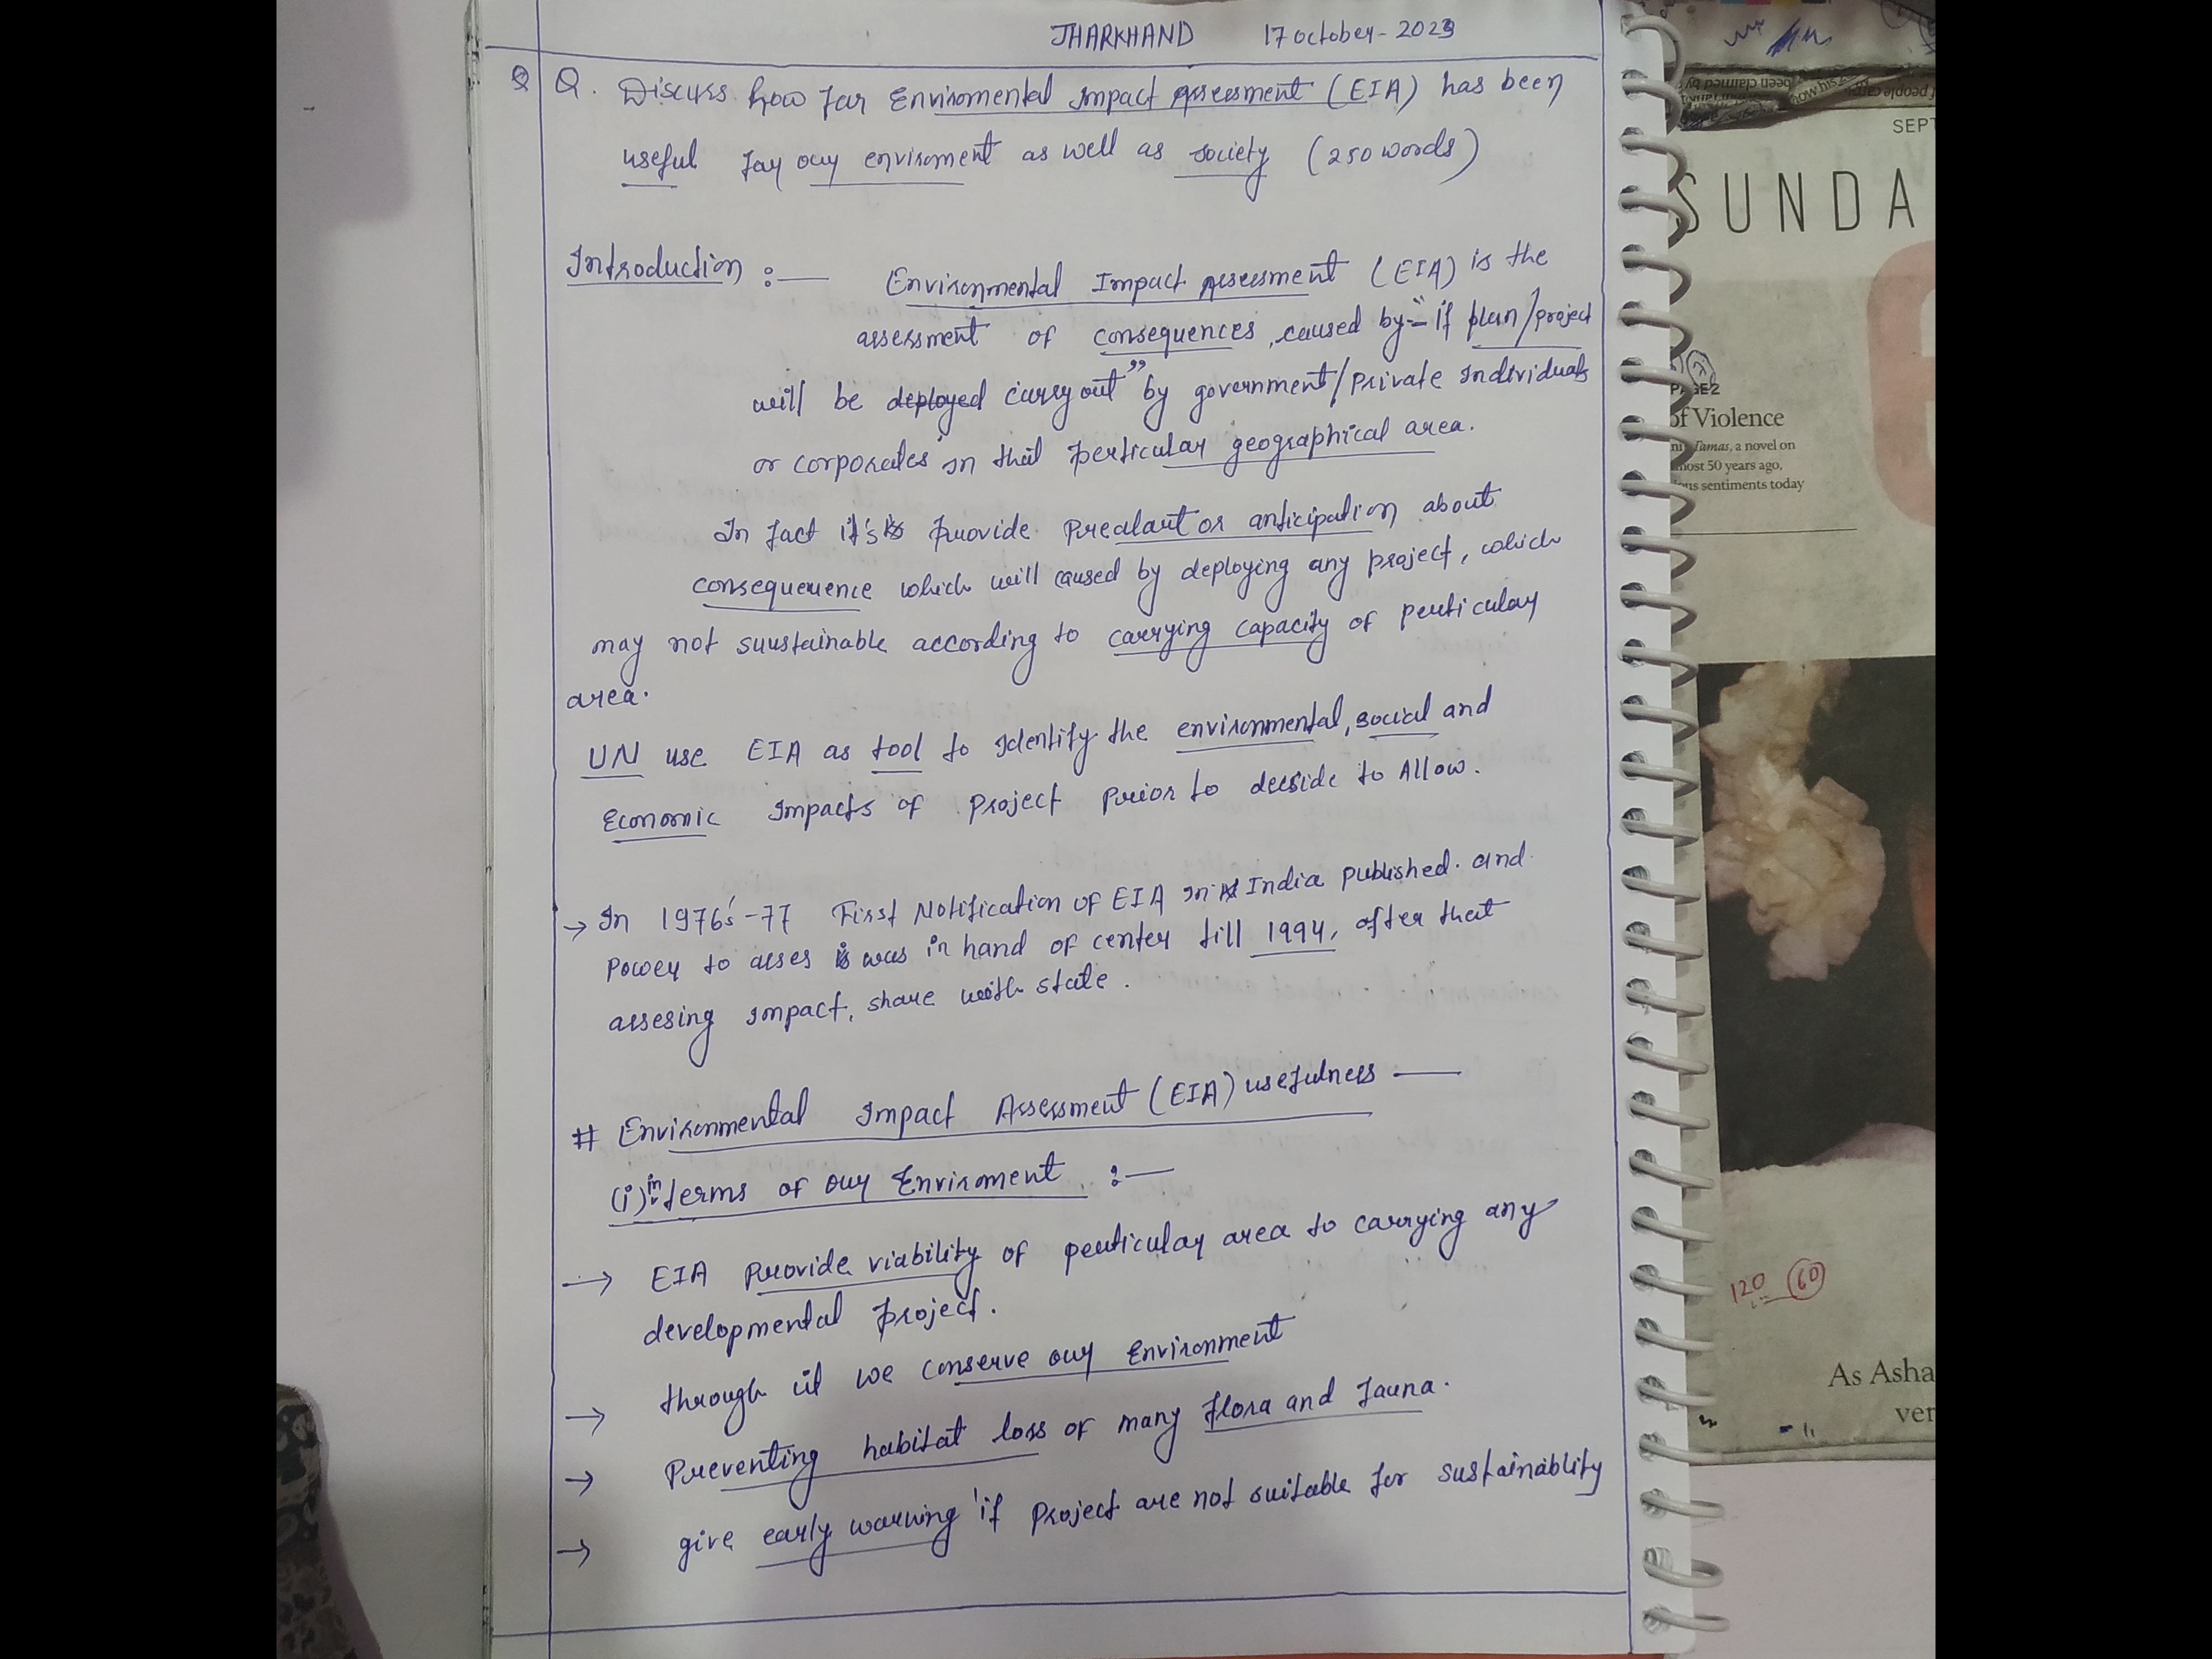 JHARKHAND 17 October-2023
Q Q. Discuss how far Enviromental Impact Assessment (EIA) has been
useful for our enviroment as well as society (250 words)
Introduction :— Environmental Impact Assessment (EIA) is the
assessment of consequences, caused by-" if plan/project
will be deployed carry out" by government/Private Individuals
or corporates in that perticular geographical area.
In fact it's is provide prealart or anticipation about
consequenence which will caused by deploying any project, which
may not suustainable according to carrying capacity of perticular
area.
UN use EIA as tool to Identify the environmental, social and
Economic Impacts of Project Prior to decside to Allow.
→ In 1976's-77 First Notification of EIA In India published. and
Power to asses is was in hand of center till 1994, after that
assesing Impact, share with state.
# Environmental Impact Assessment (EIA) usefulness —
(i) in terms of our Enviroment :—
→ EIA Provide viability of perticular area to carrying any
developmental project.
→ through it we conserve our Environment
→ Preventing habitat loss of many flora and fauna.
→ give early warning if Project are not suitable for sustainablity
been claimed by
how his
people
SEPT
SUNDA
PAGE 2
of Violence
Tamas, a novel on
most 50 years ago,
sentiments today
120 60
As Asha
ver